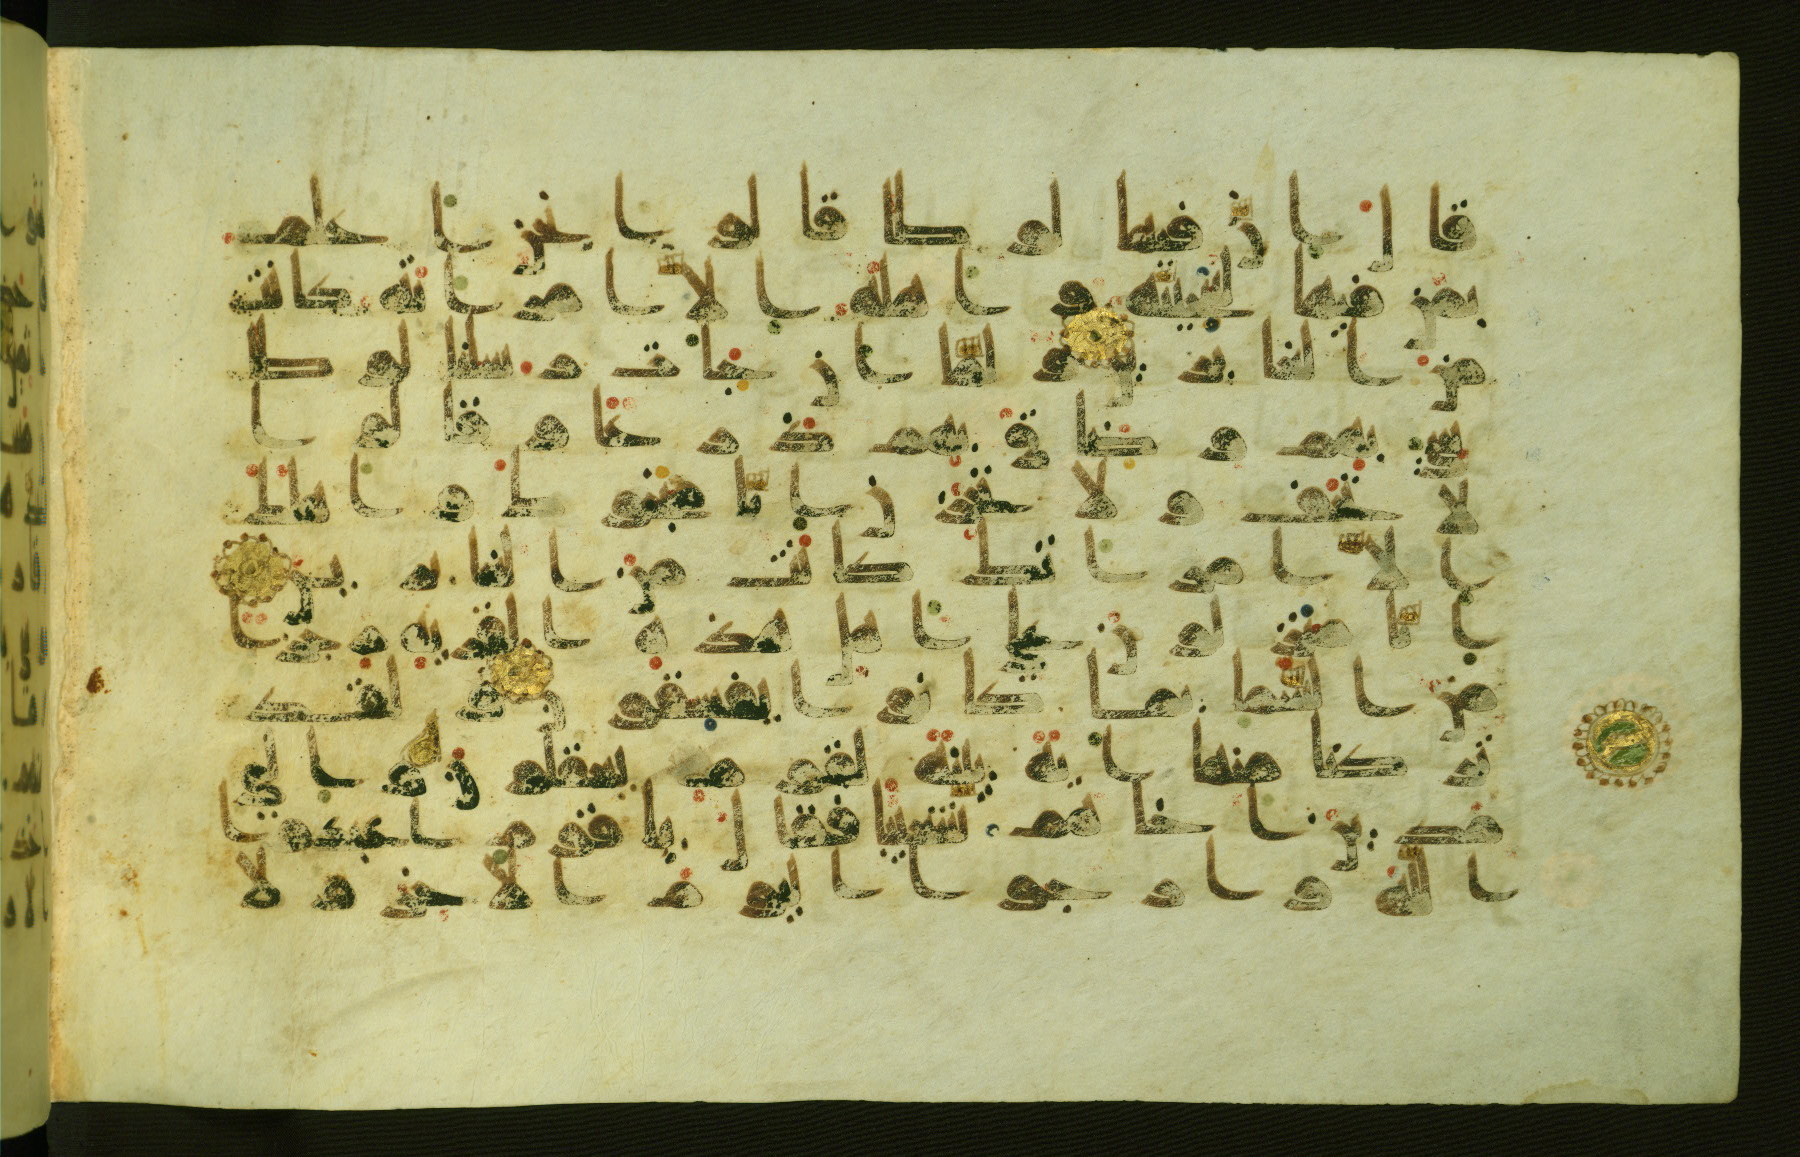 قال ان فيها لوطا قالوا نحن اعلم
بمن فيها لننجينه واهله الا امراته كانت
من الغابرين ولما ان جات رسلنا لوطا
سي بهم وضاق بهم ذرعا وقالوا
لا تخف ولا تحزن انا منجوك واهلك
الا امراتك كانت من الغابرين
انا منزلون على اهل هذه القرية رجزا
من السما بما كانوا يفسقون ولقد
تركنا منها اية بينة لقوم يعقلون والى
مدين اخاهم شعيبا فقال يقوم اعبدوا
الله وارجوا اليوم الاخر ولا